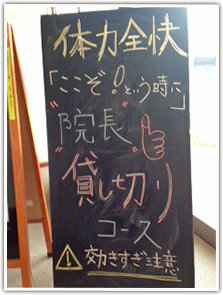 体力全快
「ここぞ!という時に」
"院長"
貸し切り
コース
⚠効きすぎ注意